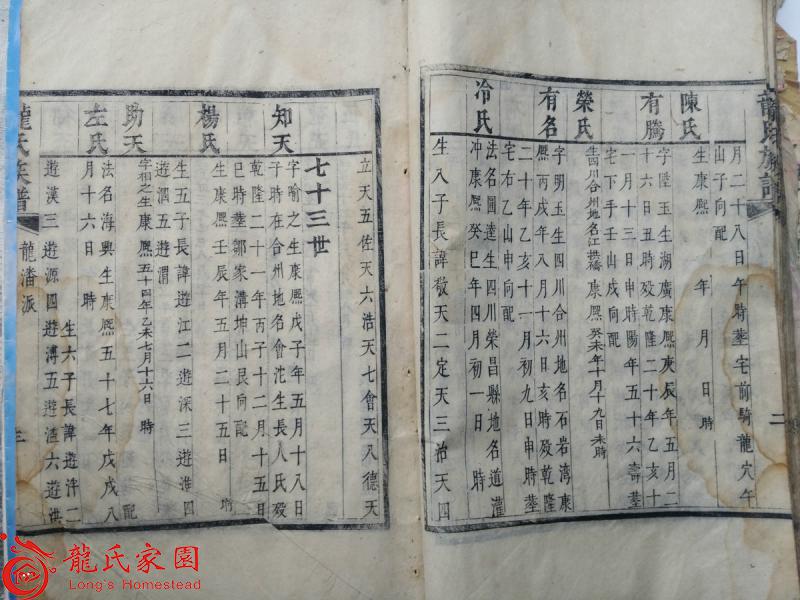 龍氏族譜
二
月二十八日午時塟宅前騎龍穴午
山子向配
陳氏
生康熙 年 月 日 時
有騰
字陞玉生湖廣康熙庚辰年五月二
十六日丑時殁乾隆二十年乙亥十
一月十三日申時陽年五十六壽塟
宅下手壬山戌向配
榮氏
生四川合州地名江拱橋康熙癸未年十月十九日未時
有名
字明玉生四川合州地名石岩湾康
熙丙戌年八月十六日亥時殁乾隆
二十年乙亥十一月初九日申時塟
宅右乙山申向配
冷氏
法名圓達生四川榮昌縣地名道灌
冲康熙癸巳年四月初一日 時
生八子長諱敬天二定天三治天四
立天五佐天六浩天七會天八德天
七十三世
知天
字喻之生康熙戊子年五月十八日
子時在合州地名會沱生長人氏殁
乾隆二十一年丙子十二月十五日
巳時塟鄒家溝坤山艮向配
楊氏
生康熙壬辰年五月二十五日 時
生五子長諱遊江二遊深三遊淮四
遊泗五遊渭
助天
字相之生康熙五十四年乙未七月十六日 時 配
左氏
法名海興生康熙五十七年戊戌八
月十六日 時
生六子長諱遊泮二
遊漢三遊源四遊溥五遊渣六遊洪
龍氏族譜
龍潘派
三
龍氏家園
Long's Homestead